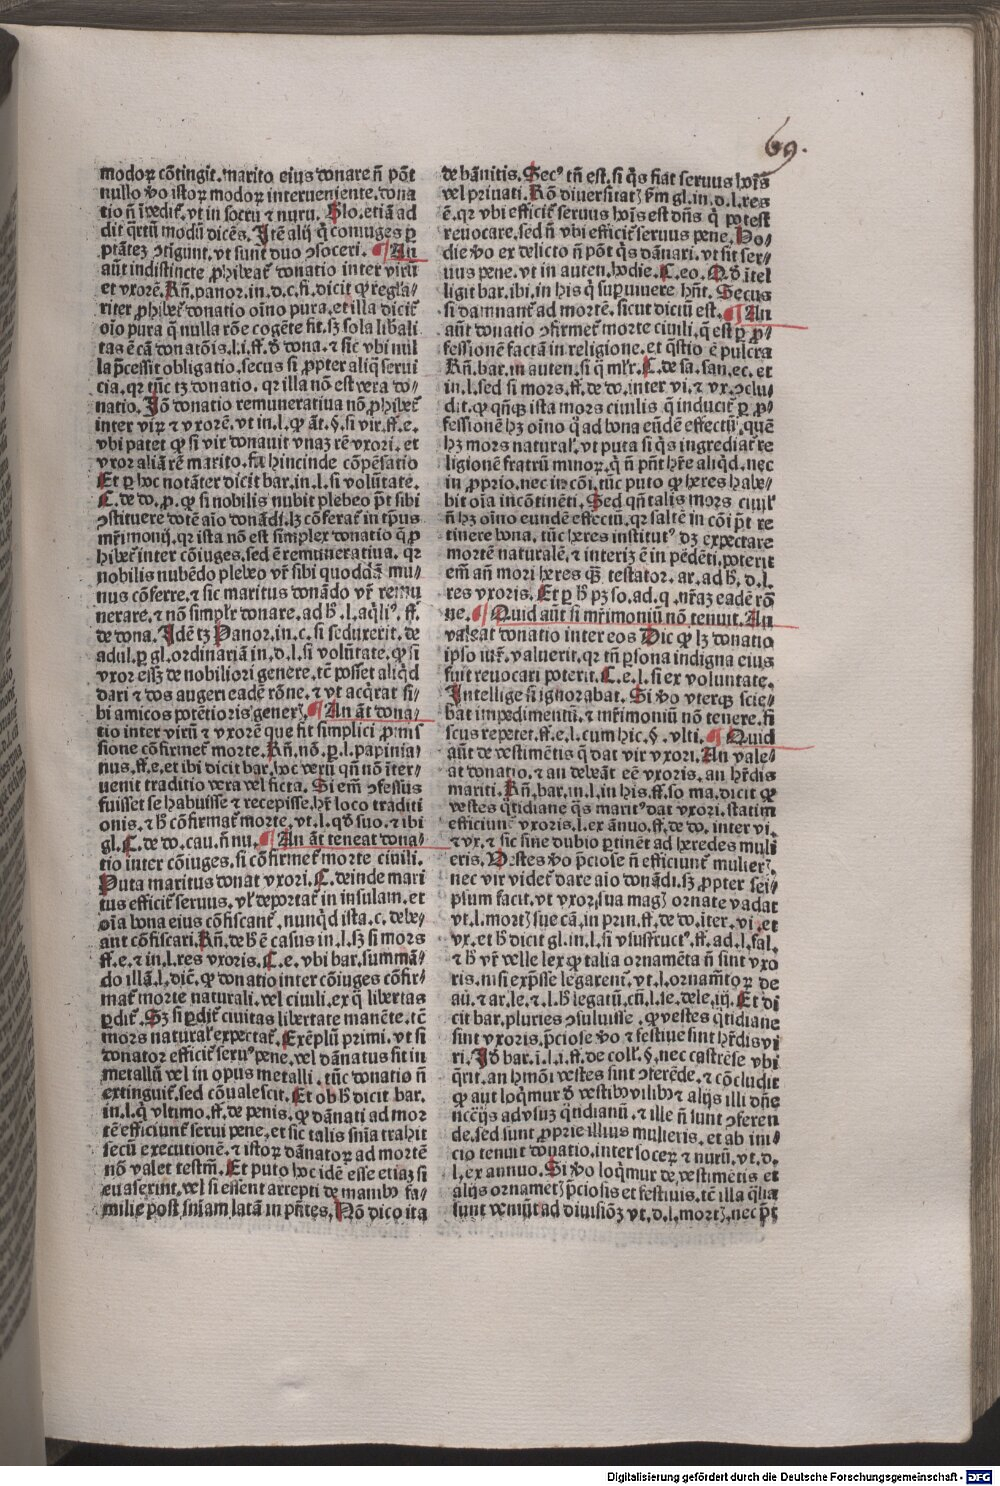 69.
modoꝝ cõtingit. marito eius donare ñ põt
nullo ꝟo istoꝝ modoꝝ interueniente. dona
tio ñ ĩpedit̃. vt in socru ⁊ nuru. Glo. etiã ad
dit q̃rtũ modũ dicẽs. Itẽ alij q̃ cõiuges ꝑ
ptãtez ꝯtigunt. vt sunt duo ꝯsoceri. ¶ An
aũt indistincte ꝓhibeat̃ donatio inter virũ
et vxorẽ. Rñ. panor. in. d. c. fi. dicit ꝙ regla⸗
riter ꝓhibet̃ donatio oĩno pura. et illa dicit̃
oĩo pura q̃ nulla rõe cogẽte fit. sꝫ sola libãli
tas ẽ cã donatõis. l. i. ff. đ dona. ⁊ sic vbi nul
la p̃cessit obligatio. secus si ꝓpter aliq̃ serui
cia. qꝛ tũc tꝫ donatio. qꝛ illa nõ est vera do⸗
natio. Iõ donatio remuneratiua nõ ꝓhibet̃
inter viꝝ ⁊ vxorẽ. vt in. l. ꝙ aũt. §. si vir. ff. e.
vbi patet ꝙ si vir donauit vnaz rẽ vxori. et
vxor aliã rẽ marito. fit hincinde cõpẽsatio
Et ꝑ hoc notãter dicit bar. in. l. si volũtate.
C. de do. ꝓ. ꝙ si nobilis nubit plebeo p̃t sibi
ꝯstituere dotẽ aĩo donãdi. lꝫ cõferat̃ in tp̃us
mr̃imonij. qꝛ ista nõ est simplex donatio q̃ ꝓ
hibet̃ inter cõiuges. sed ẽ remuneratiua. qꝛ
nobilis nubẽdo plebeo vr̃ sibi quoddã mu⸗
nus cõferre. ⁊ sic maritus donãdo vr̃ remu
nerare. ⁊ nõ simplr̃ donare. ad h̃. l. aq̃liꝰ. ff.
de dona. Idẽ tꝫ Panor. in. c. si seduxerit. de
adul. ꝑ gl. ordinariã in. d. l. si volũtate. ꝙ si
vxor eēt de nobiliori genere. tẽ posset aliq̃d
dari ⁊ dos augeri eadẽ rõne. ⁊ vt acq̃rat si⸗
bi amicos potẽtioris generꝭ. ¶ An aũt dona⸗
tio inter virũ ⁊ vxorẽ que fit simplici ꝓmis
sione cõfirmet̃ morte. Rñ. nõ. ꝑ. l. papinia⸗
nus. ff. e. et ibi dicit bar. hoc verũ qñ nõ ĩter⸗
uenit traditio vera vel ficta. Si em̃ ꝯfessus
fuisset se habuisse ⁊ recepisse. hr̃ loco traditi
onis. ⁊ h̃ cõfirmat̃ morte. vt. l. q̃d suo. ⁊ ibi
gl. C. de do. cau. ñ nu. ¶ An aũt teneat dona⸗
tio inter cõiuges. si cõfirmet̃ morte ciuili.
Puta maritus donat vxori. deinde mari
tus efficit̃ seruus. vl̃ deportat̃ in insulam. et
oĩa bona eius cõfiscant̃. nunq̃d ista. c. debe⸗
ant cõfiscari. Rñ. de h̃ ẽ casus in. l. sꝫ si mors
ff. e. ⁊ in. l. res vxoris. C. e. vbi bar. summã⸗
do illã. l. dic̃. ꝙ donatio inter cõiuges cõfir⸗
mat̃ morte naturali. vel ciuili. ex q̃ libertas
ꝑdit̃. Sꝫ si ꝑdit̃ ciuitas libertate manẽte. tẽ
mors natural̃ expectat̃. Exẽplũ primi. vt si
donator efficit̃ seruꝰ pene. vel dãnatus sit in
metallũ vel in opus metalli. tũc donatio ñ
extinguit̃. sed cõualescit. Et ob h̃ dicit bar.
in. l. q̃ vltimo. ff. de penis. ꝙ dãnati ad mor
tẽ efficiunt̃ serui pene. et sic talis snĩa trahit
secũ executionẽ. ⁊ istoꝝ dãnatoꝝ ad mortẽ
nõ valet testm̃. Et puto hoc idẽ esse etiaz si
euaserint. vel si essent arrepti de manibꝰ fa⸗
milie post snĩam latã in pñtes. Nõ dico ita
de bãnitis. Secꝰ tñ est. si q̃s fiat seruus hoĩs
vel priuati. Rõ diuersitatꝭ ẽm gl. in. d. l. res
ẽ. qꝛ vbi efficit̃ seruus hoĩs est dñs q̃ potest
reuocare. sed ñ vbi efficit̃ seruus pene. Ho⸗
die ꝟo ex delicto ñ põt q̃s dãnari. vt sit ser⸗
uus pene. vt in auten. hodie. C. eo. Qđ ĩtel
ligit bar. ibi. in his q̃ suꝑuiuere hñt. Secus
si damnant̃ ad mortẽ. sicut dictũ est. ¶ An
aũt donatio ꝯfirmet̃ morte ciuili. q̃ est ꝑ ꝓ⸗
fessionẽ factã in religione. et q̃stio ẽ pulcra
Rñ. bar. in auten. si q̃ ml̃r. C. de sa. san. ec. et
in. l. sed si mors. ff. de do. inter vi. ⁊ vx. ꝯclu⸗
dit. ꝙ qñqꝫ ista mors ciuilis q̃ inducit̃ ꝑ ꝓ⸗
fessionẽ hꝫ oĩno q̃ ad bona eũdẽ effectũ. quẽ
hꝫ mors natural̃. vt puta si q̃s ingrediat̃ re
ligionẽ fratrũ minoꝝ. q̃ ñ pñt hr̃e aliq̃d. nec
in ꝓprio. nec in cõi. tũc puto ꝙ heres habe⸗
bit oĩa incõtinẽti. Sed qñ talis mors ciuil̃
ñ hꝫ oĩno eundẽ effectũ. qꝛ saltẽ in cõi p̃t re
tinere bona. tũc heres institutꝰ dꝫ expectare
mortẽ naturalẽ. ⁊ interiꝫ ẽ in pẽdẽti. poterit
em̃ añ mori heres q̃ꝫ testator. ar. ad h̃. d. l.
res vxoris. Et ꝑ h̃ pꝫ so. ad. q. nr̃az eadẽ rõ
ne. ¶ Quid aũt si mr̃imoniũ nõ tenuit. An
valeat donatio inter eos Dic ꝙ lꝫ donatio
ipso iur̃. valuerit. qꝛ tñ ꝑsona indigna eius
fuit reuocari poterit. C. e. l. si ex voluntate.
Intellige si ignorabat. Si ꝟo vterqꝫ scie⸗
bat impedimentũ. ⁊ mr̃imoniũ nõ tenere. fi
scus repetet. ff. e. l. cum hic. §. vlti. ¶ Quid
aũt de vestimẽtis q̃ dat vir vxori. An vale⸗
at donatio. ⁊ an debeãt eẽ vxoris. an hr̃dis
mariti. Rñ. bar. in. l. in his. ff. so ma. dicit ꝙ
vestes q̃tidiane q̃s maritꝰ dat vxori. statim
efficiunt̃ vxoris. l. ex ãnuo. ff. de do. inter vi.
⁊ vx. ⁊ sic sine dubio ꝑtinẽt ad heredes muli
eris. Uestes ꝟo p̃ciose ñ efficiunt̃ mulierꝭ.
nec vir videt̃ dare aĩo donãdi. sꝫ ꝓpter sei⸗
psum facit. vt vxor sua magꝭ ornate vadat
vt. l. mortꝭ sue cã. in prin. ff. de do. ĩter. vi. et
vx. et h̃ dicit gl. in. l. si vsufructꝰ. ff. ad. l. fal.
⁊ h̃ vr̃ velle lex ꝙ talia ornamẽta ñ sint vxo
ris. nisi exp̃sse legarent̃. vt. l. ornam̃toꝝ de
au. ⁊ ar. le. ⁊. l. h̃ legatũ. cũ. l. se. de le. iij. Et di
cit bar. pluries ꝯsuluisse. ꝙ vestes q̃tidiane
sint vxoris. p̃ciose ꝟo ⁊ festiue sint hr̃dis vi
ri. Iđ bar. ĩ. l. i. ff. de coll̃. §. nec castrẽse vbi
q̃rit. an hmõi vestes sint ꝯferẽde. ⁊ cõcludit
ꝙ aut loq̃mur đ vestibꝰ vilibꝰ ⁊ alijs illi oñe
ncc̃ijs ad vsuz q̃tidianũ. ⁊ ille ñ sunt ꝯferen
de. sed sunt ꝓprie illius mulieris. et ab ini⸗
cio tenuit donatio. inter soceꝝ ⁊ nurũ. vt. d.
l. ex annuo. Si ꝟo loq̃mur de vestimẽtis et
alijs ornamẽtꝭ p̃ciosis et festiuis. tẽ illa q̃lia
sunt veniũt ad diuisiõꝫ vt. d. l. mortꝭ. nec p̃t
Digitalisierung gefördert durch die Deutsche Forschungsgemeinschaft - DFG